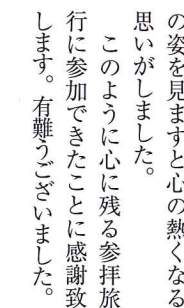 の姿を見ますと心の熱くなる
思いがしました。
　このように心に残る参拝旅
行に参加できたことに感謝致
します。有難うございました。